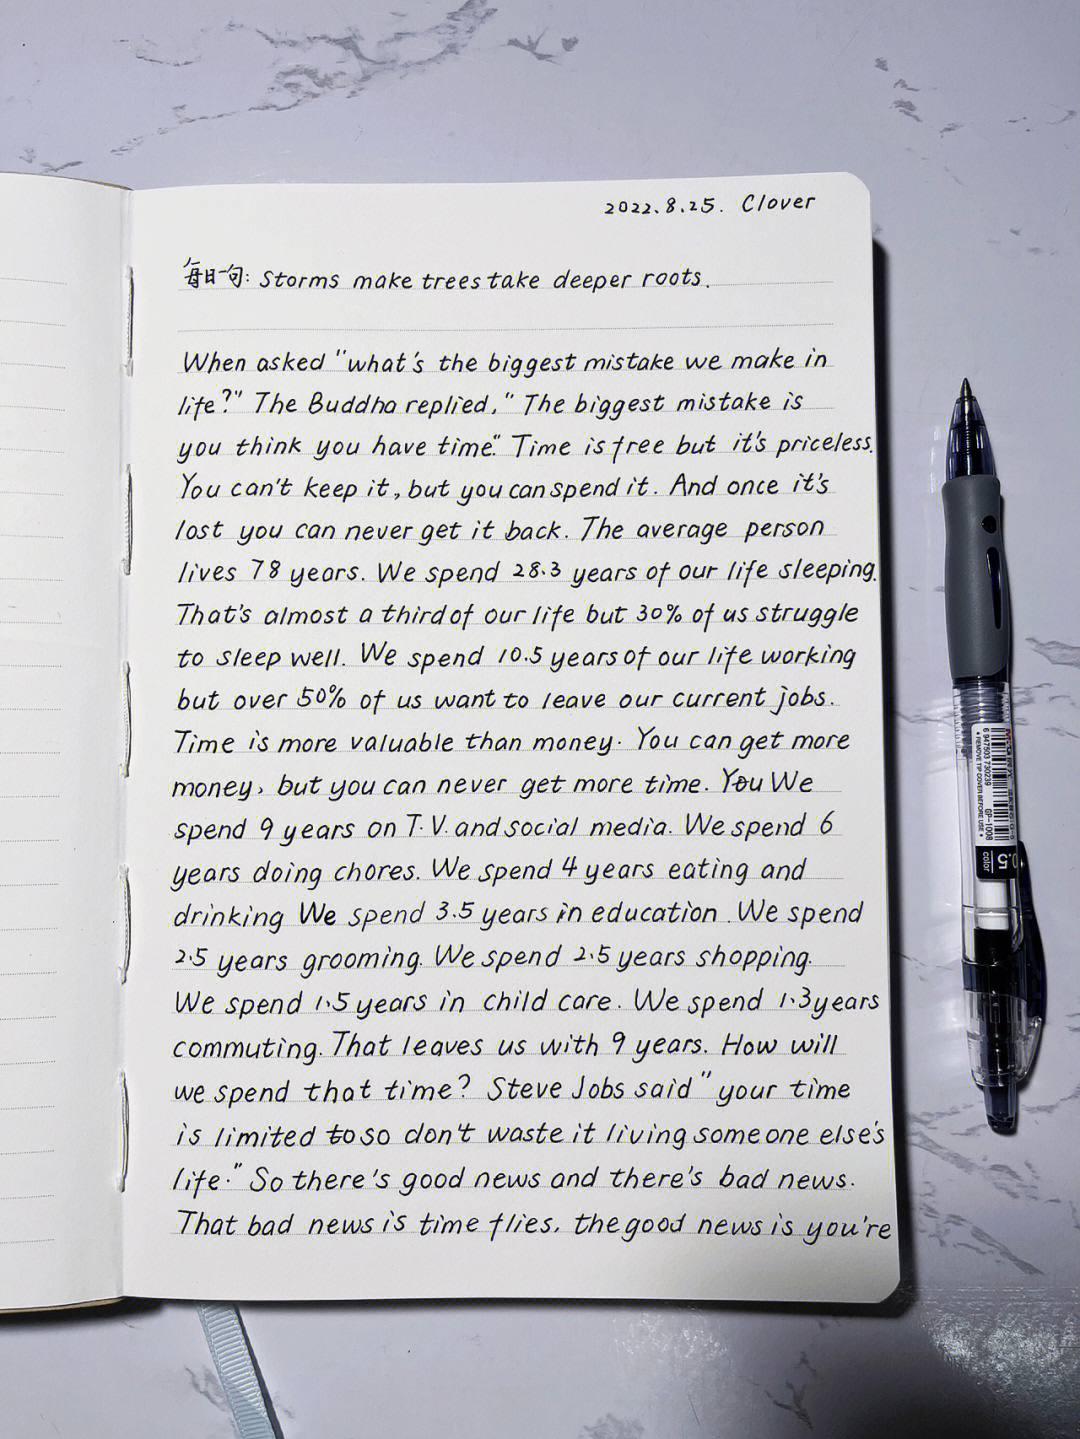 2022.8.25. Clover
每日一句: Storms make trees take deeper roots.
When asked "what's the biggest mistake we make in
life?" The Buddha replied," The biggest mistake is
you think you have time". Time is free but it's priceless.
You can't keep it, but you can spend it. And once it's
lost you can never get it back. The average person
lives 78 years. We spend 28.3 years of our life sleeping.
That's almost a third of our life but 30% of us struggle
to sleep well. We spend 10.5 years of our life working
but over 50% of us want to leave our current jobs.
Time is more valuable than money. You can get more
money, but you can never get more time. You We
spend 9 years on T.V. and social media. We spend 6
years doing chores. We spend 4 years eating and
drinking We spend 3.5 years in education. We spend
2.5 years grooming. We spend 2.5 years shopping.
We spend 1.5 years in child care. We spend 1.3 years
commuting. That leaves us with 9 years. How will
we spend that time? Steve Jobs said "your time
is limited to so don't waste it living someone else's
life." So there's good news and there's bad news.
That bad news is time flies, the good news is you're
M&G
6 947503 730239
GP-1008
REMOVE TIP COVER BEFORE USE
0.5
color